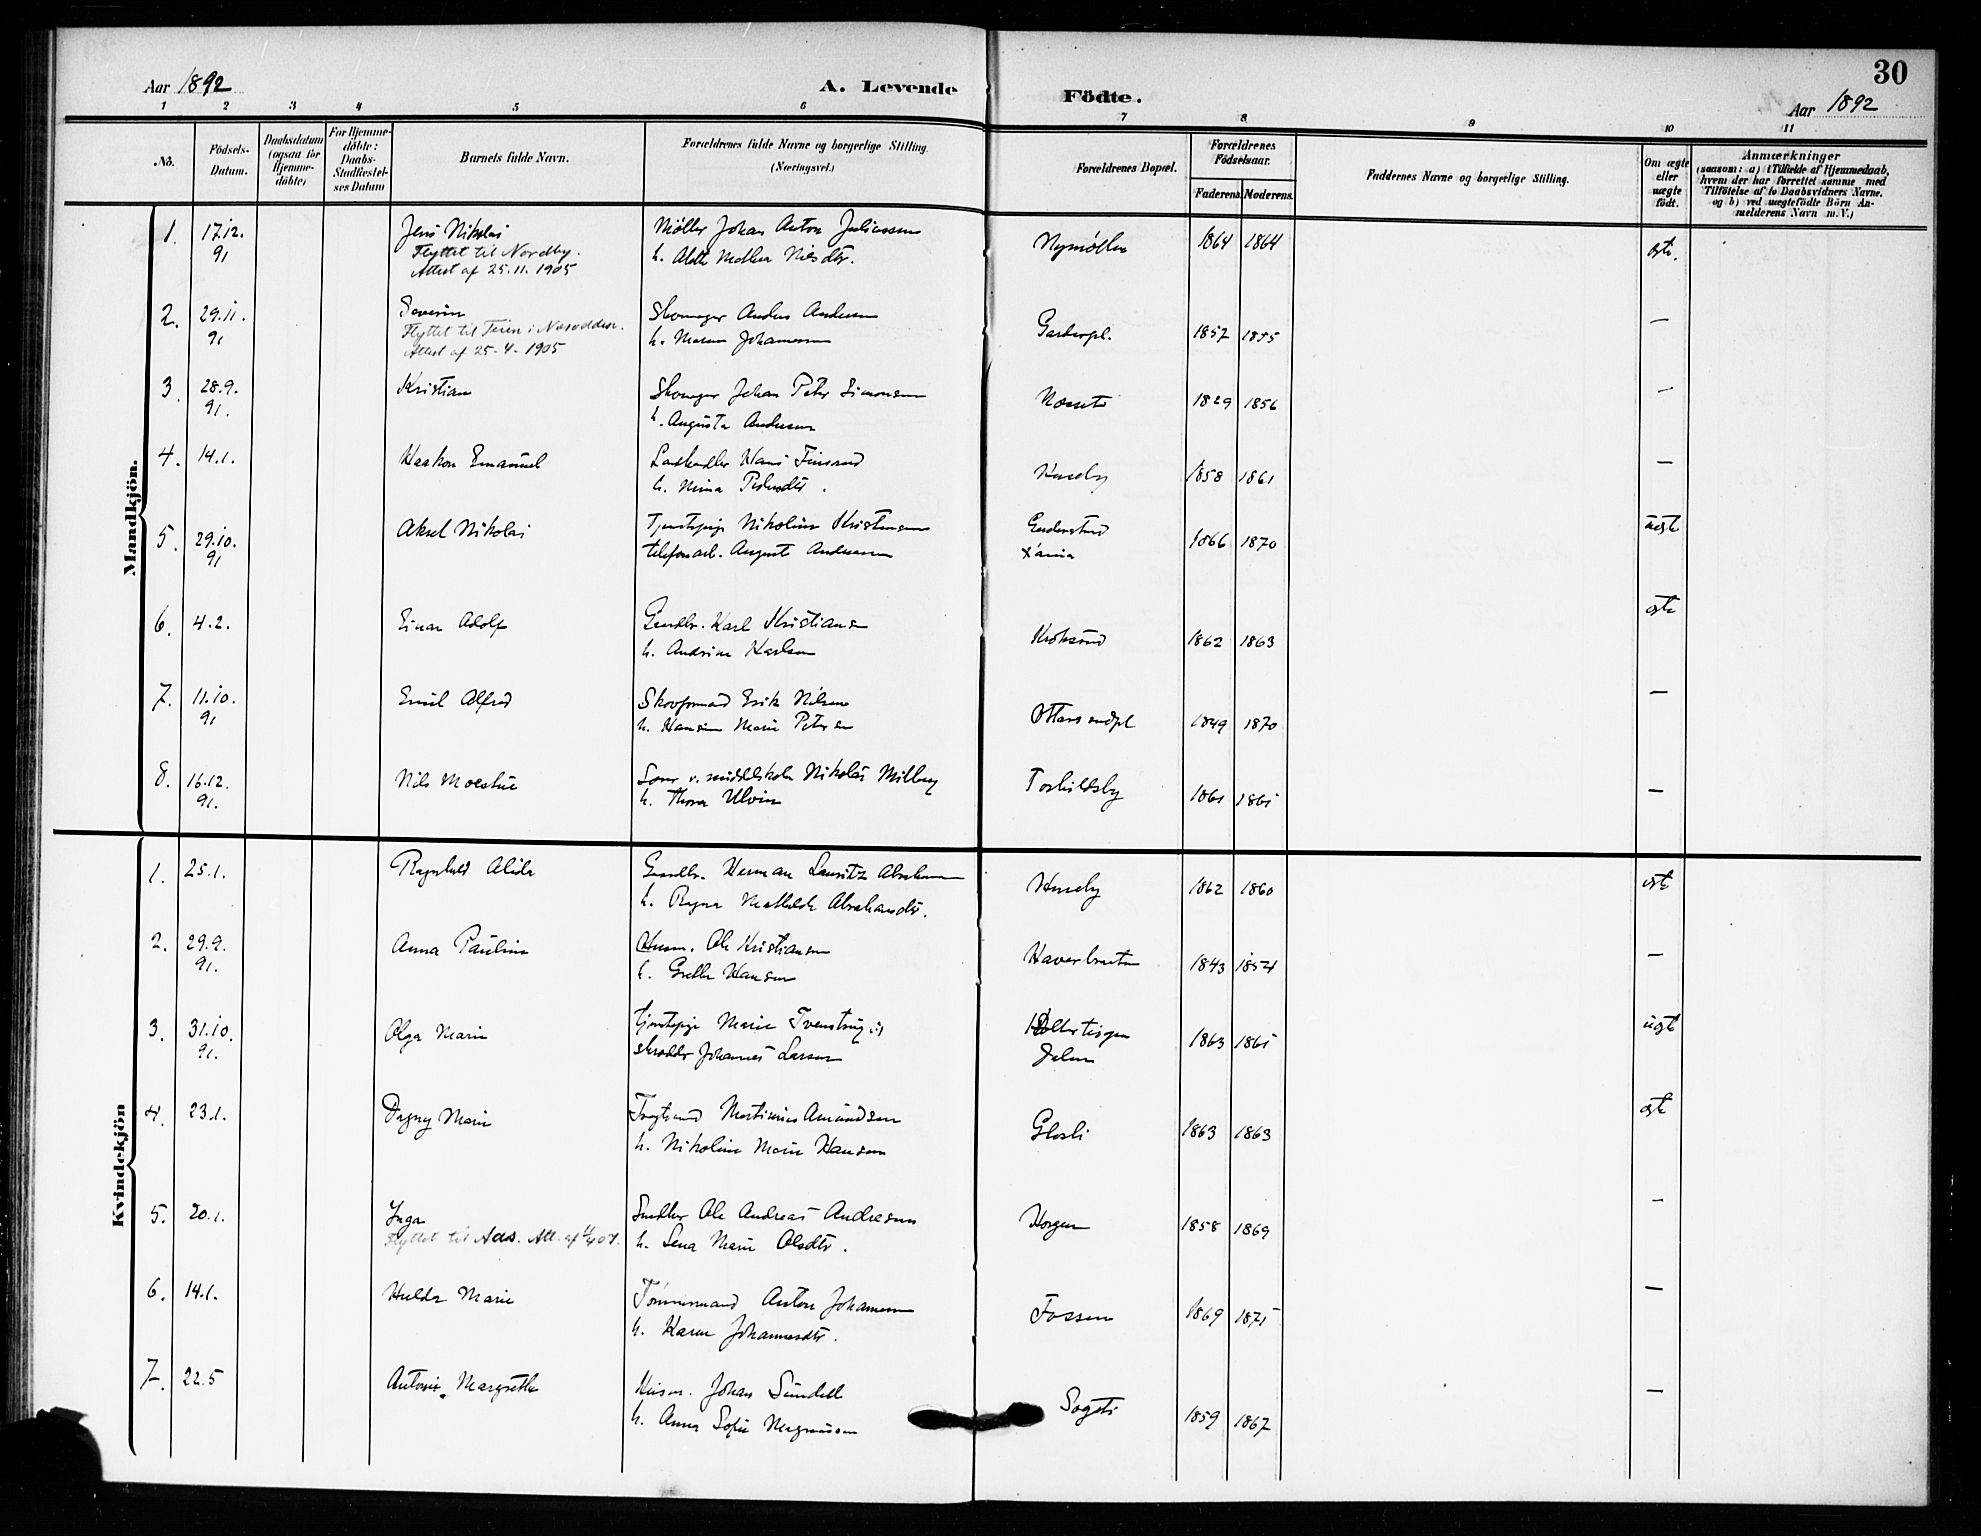 Aar 1892
A. Levende Födte.
30
Aar 1892
1 2 3 4 5 6 7 8 9 10 11
No. Födsels-Datum. Daabsdatum (ogsaa for Hjemmedöbte) For Hjemmedöbte: Daabs-Stadfæstelses Datum Barnets fulde Navn. Forældrenes fulde Navne og borgerlige Stilling. (Næringsvei.) Forældrenes Bopæl. Forældrenes Födselsaar. Faderens. Moderens. Faddernes Navne og borgerlige Stilling. Om ægte eller uægte födt. Anmærkninger (saasom: a) i Tilfælde af Hjemmedaab, hvem der har forrettet samme med Tilföielse af to Daabsvidners Navne. og b) ved uægtefödte Börn Anmelderens Navn m. V.)
Mandkjön.
1. 17.12. Jens Nikolai Møller Johan Anton Juliussen Nymøllen 1864 1864 egte.
91 Flyttet til Nordby. h. Nilsdtr.
Attest af 25.11.1905
2. 29.11. Severin Skomager Anders Andersen 1857 1855 —
91 Flyttet til Teien i Næsodden. h. Maren Johannessen
Attest af 25-4-1905
3. 28.9. Kristian Skomager Johan Peter Simonsen Næssets 1829 1856 —
91. h. Augusta Andersen
4. 14.1. Haakon Emanuel Landhandler Hans Finsrud Huseby 1858 1861 —
h. Mina Pedersdtr.
5. 29.10. Aksel Nikolai Tjenstepige Nikoline Kristensen 1866 1870 uegte
91 telefonarb. August Andersen X'ania
6. 4.2. Einar Adolf Gaardbr. Karl Kristiansen Kroksrud 1862 1863 egte
h. Andrine Karlsen
7. 11.10. Emil Alfred Skovformand Erik Nilsen Ottarsrudpl 1849 1870 —
91 h. Hansine Marie Petersen
8. 16.12. Nils Moestue v. middelskolen Nikolai Milberg Torkildsby 1861 1865 —
91. h. Thora Ulvin
Kvindekjön
1. 25.1. Ragnhild Alida Gaardbr. Herman Lauritz Abrahamsen Huseby 1862 1860 egte
h. Ragna Mathilde Abrahamsdtr.
2. 29.9. Anna Pauline Husm. Ole Kristiansen Haverbraaten 1843 1854 —
91. h. Grethe Hansen
3. 31.10. Olga Marie tjenstepige Marie 1863 1865 uegte
91. skrædder Johannes Larsen Dalen
4. 23.1. Dagny Marie Martinius Amundsen Glosli 1863 1863 egte
h. Nikoline Marie Hansen
5. 20.1. Inga Ole Andreas Andresen Horgen 1858 1869 —
Flyttet til Aas. h. Lena Marie Olsdtr.
6. 14.1. Hulda Marie Tømmermand Anton Johannessen Fossen 1869 1875 —
h. Karen Johannesdtr.
7. 22.5 Antonie Margrethe Husm. Johan Sundell Sogsti 1859 1867 —
h. Anna Sofie Magnussen